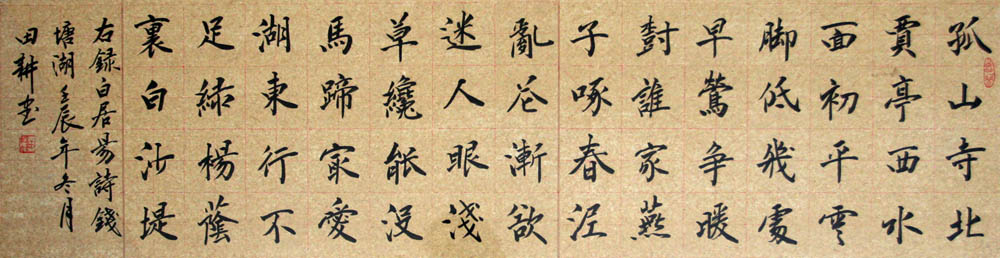 孤山寺北
賈亭西水
面初平雲
脚低幾處
早鶯争暖
樹誰家燕
子啄春泥
亂花漸欲
迷人眼淺
草纔能没
馬蹄最愛
湖東行不
足緑楊蔭
裏白沙堤
右録白居易詩錢
塘湖壬辰年冬月
田耕書